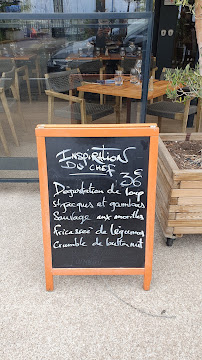 INSPIRATIONS
DU CHEF
36
Dégustation de loup
St jacques et gambas
Sauvage aux morilles
Fricassée de légumes
Crumble de butternut